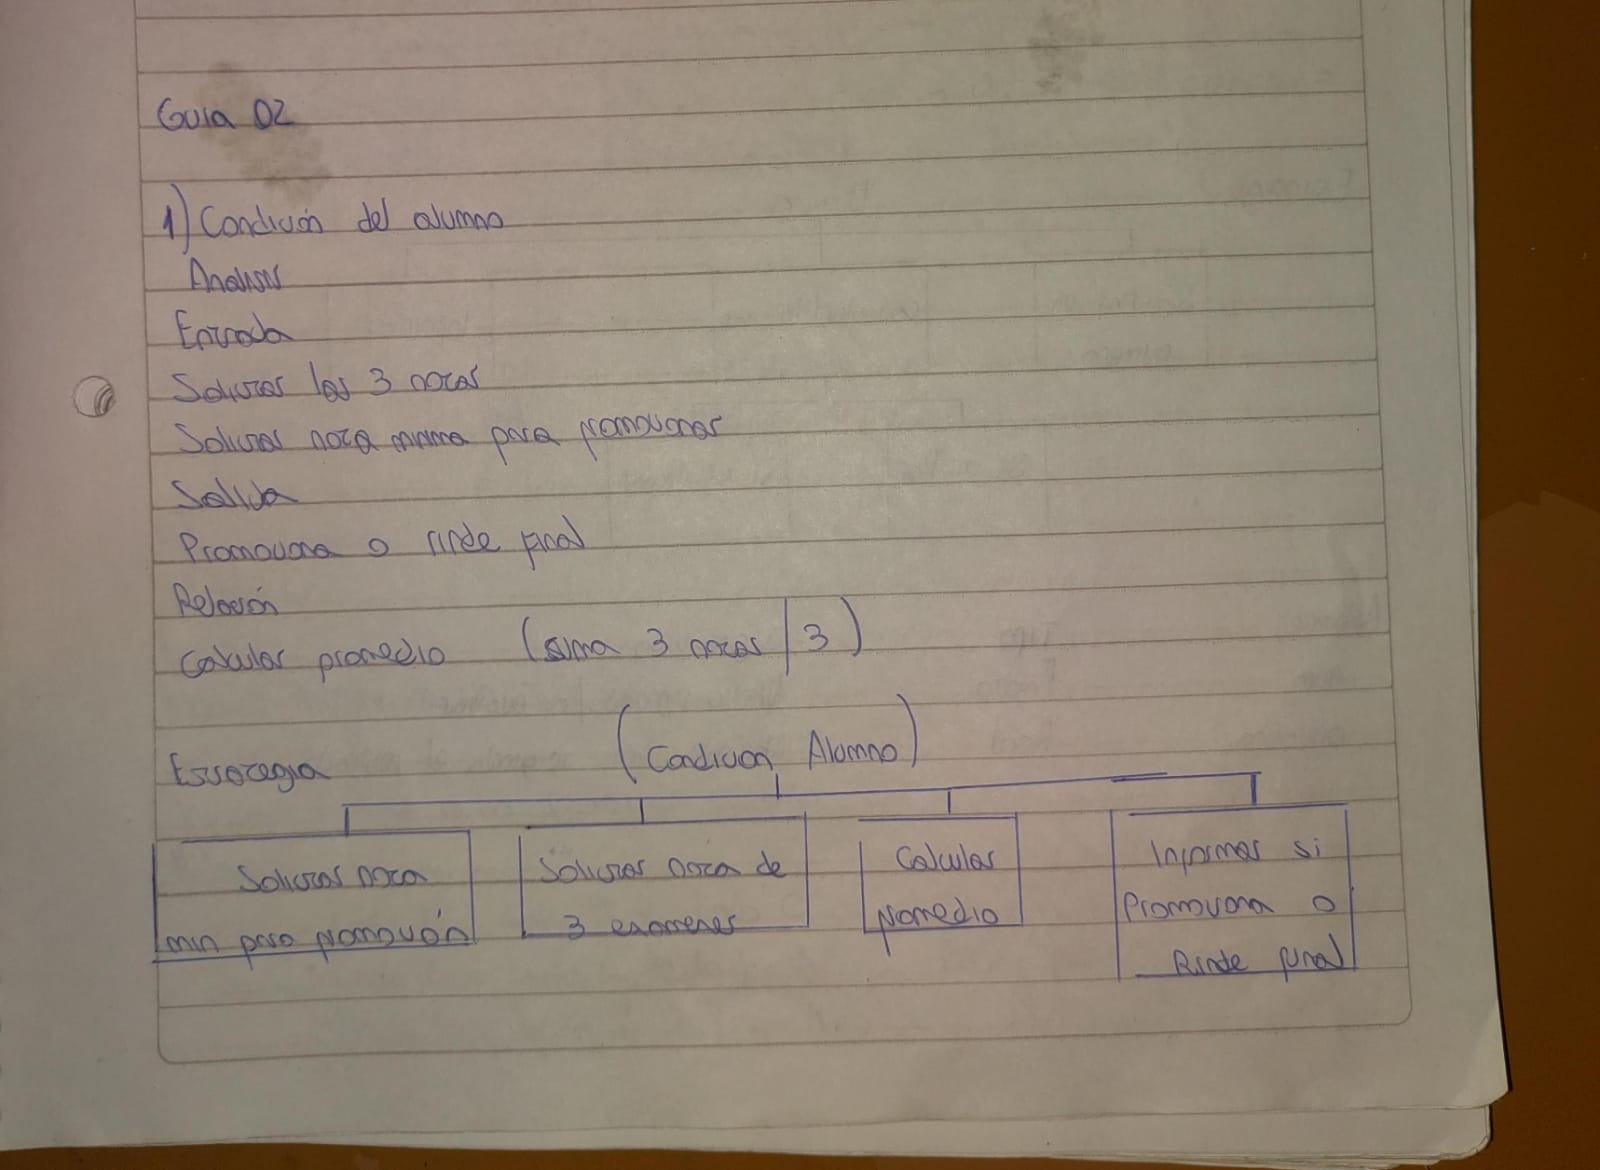 Guia 02
1) Condición del alumno
Analisis
Entrada
Solicitar las 3 notas
Solicitar nota minima para promocionar
Salida
Promociona o rinde final
Relación
Calcular promedio (suma 3 notas / 3)
Estrategia
(Condicion Alumno)
Solicitar nota
min para promoción
Solicitar nota de
3 examenes
Calcular
promedio
Informar si
Promociona o
Rinde final